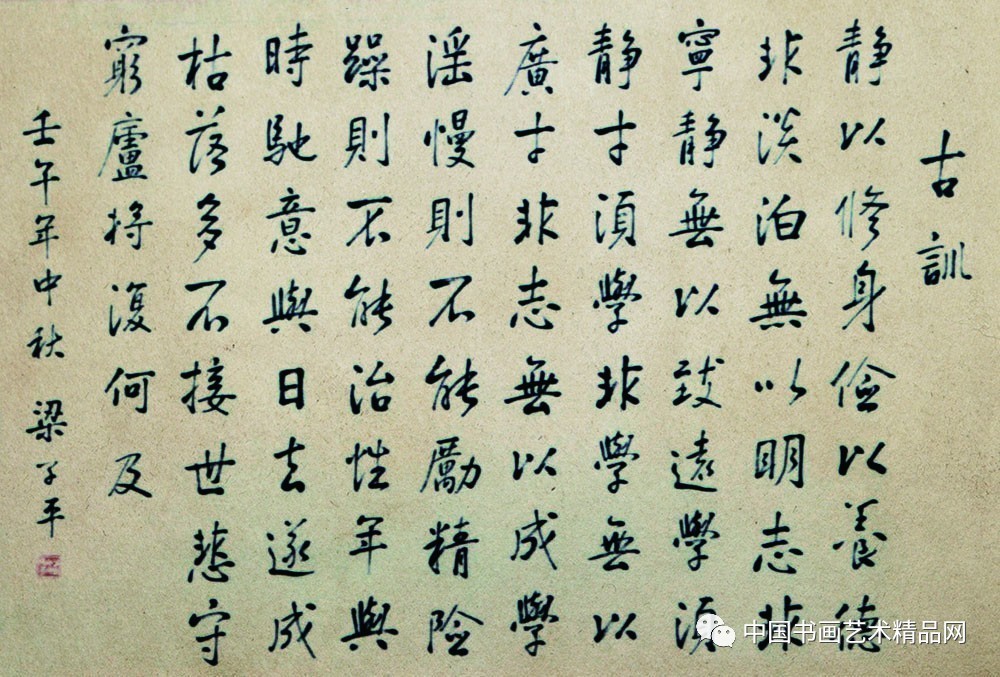 古訓
静以修身儉以養德
非淡泊無以明志非
寧静無以致遠學須
静才須學非學無以
廣才非志無以成學
淫慢則不能勵精險
躁則不能治性年與
時馳意與日去遂成
枯落多不接世悲守
窮廬將復何及
壬午年中秋 梁子平
中国书画艺术精品网